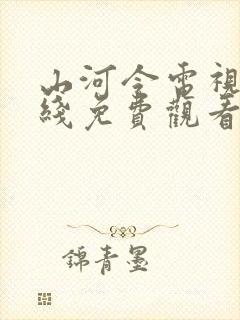 山河令電視
綫免費觀看
錦青墨